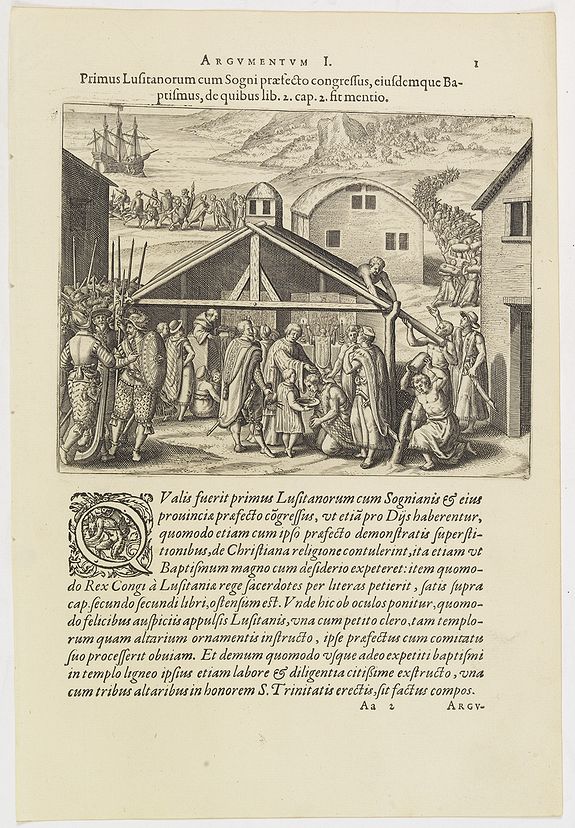 ARGVMENTVM I. 1
Primus Luſitanorum cum Sogni præfecto congreſſus, eiuſdemque Ba-
ptiſmus, de quibus lib. 2. cap. 2. fit mentio.
QValis fuerit primus Luſitanorum cum Sognianis & eius
prouinciæ præfecto cõgreſſus, vt etiã pro Dijs haberentur,
quomodo etiam cum ipſo præfecto demonſtratis ſuperſti-
tionibus, de Chriſtiana religione contulerint, ita etiam vt
Baptiſmum magno cum deſiderio expeteret: item quomo-
do Rex Congi à Luſitaniæ rege ſacerdotes per literas petierit, ſatis ſupra
cap. ſecundo ſecundi libri, oſtenſum eſt. Vnde hic ob oculos ponitur, quomo-
do felicibus auſpiciis appulſis Luſitanis, vna cum petito clero, tam templo-
rum quam altarium ornamentis inſtructo, ipſe præfectus cum comitatu
ſuo proceſſerit obuiam. Et demum quomodo vſque adeo expetiti baptiſmi
in templo ligneo ipſius etiam labore & diligentia citiſsime exſtructo, vna
cum tribus altaribus in honorem S. Trinitatis erectis, ſit factus compos.
Aa 2 ARGV-